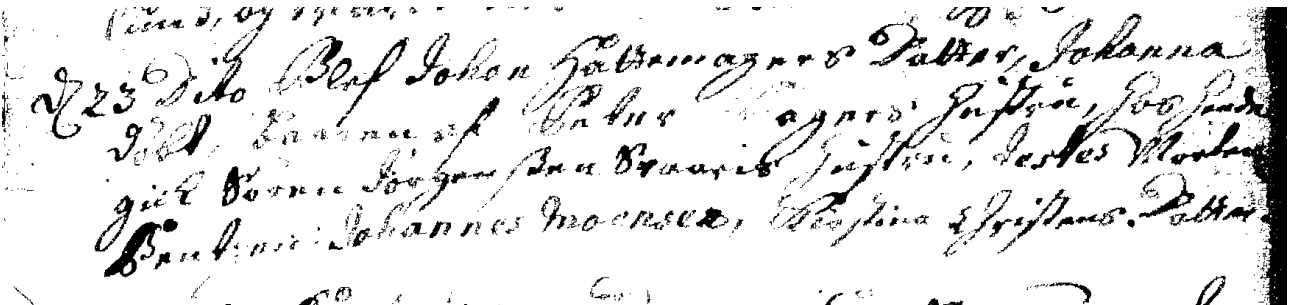 d 23 Dito Blef Johan Hattemagers Datter, Johanna
døbt, baaren af Peter agers Hustru, hos hende
gick Sören Jörgenssen Svaris Hustru, testes Morten
Bentsen: Johannes Moensen, Kirstina Christens Datter.